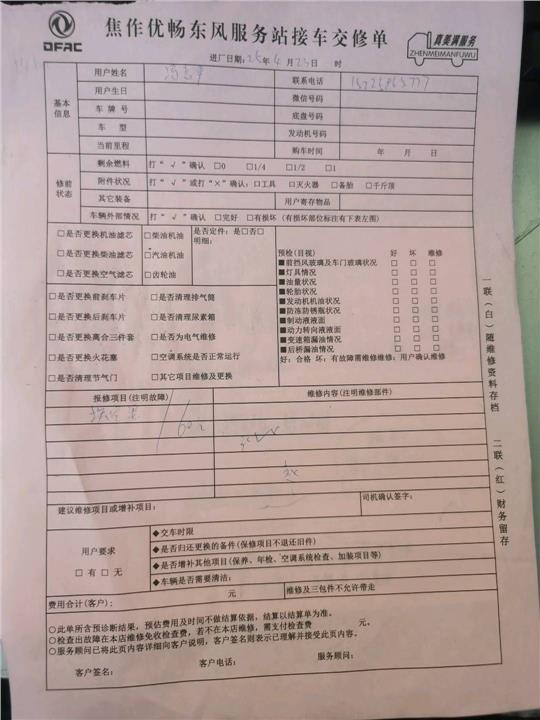 DFAC
焦作优畅东风服务站接车交修单
真美满服务
ZHENMEIMANFUWU
进厂日期: 25年 4月23日 时
基本信息
用户姓名 联系电话
用户生日 微信号码
车牌号 底盘号码
车型 发动机号码
当前里程 购车时间 年 月 日
修前状态
剩余燃料 打“√”确认 □0 □1/4 □1/2 □1
附件状况 打“√”或打“×”确认: □工具 □灭火器 □备胎 □千斤顶
其它装备 用户寄存物品
车辆外部情况 打“√”确认 □完好 □有损坏 (有损坏部位标注有下表左图)
□是否更换机油滤芯 □柴油机油
□是否更换柴油滤芯 □汽油机油
□是否更换空气滤芯 □齿轮油
是否定件: 是□否□
明细:
□是否更换前刹车片 □是否清理排气筒
□是否更换后刹车片 □是否清理尿素箱
□是否更换离合三件套 □是否为电气维修
□是否更换火花塞 □空调系统是否正常运行
□是否清理节气门 □其它项目维修及更换
预检(目视) 好 坏 维修
■前挡风玻璃及车门玻璃状况 □ □ □
■灯具情况 □ □ □
■油量状况 □ □ □
■轮胎状况 □ □ □
■发动机机油状况 □ □ □
■防冻防锈瓶状况 □ □ □
■制动液液面 □ □ □
■动力转向液液面 □ □ □
■变速箱漏油情况 □ □ □
■后桥漏油情况 □ □ □
好: 合格 坏: 有故障需维修维修: 用户确认维修
报修项目(注明故障) 维修内容(注明维修部件)
建议维修项目或增补项目: 司机确认签字:
用户要求
□有 □无
◆交车时限
◆是否归还更换的备件(保修项目不退还旧件)
◆是否增补其他项目(保养、年检、空调系统检查、加装项目等)
◆车辆是否需要清洁:
费用合计(客户): 元 维修及三包件不允许带走
○此单所含预诊断结果, 预估费用及时间不做结算依据, 结算以结算单为准。
○检查出故障在本店维修免收检查费, 若不在本店维修, 需支付检查费 元。
○服务顾问已将此页内容详细向客户说明, 客户签名则表示已理解并接受此页内容。
客户签名: 客户电话: 服务顾问:
一联(白)随维修资料存档 二联(红)财务留存